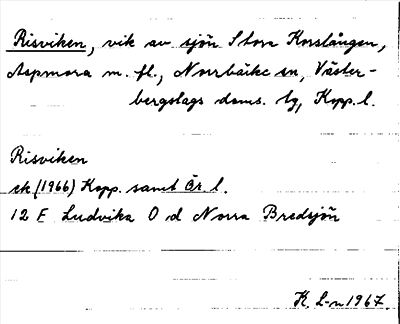 Risviken, vik av sjön Stora Korslången,
Aspmora m. fl., Norrbärke sn, Väster-
bergslags doms. tg, Kopp. l.
Risviken
ek (1966) Kopp. samt Ör. l.
12 F Ludvika O d Norra Bredsjön
K. L-n 1967.